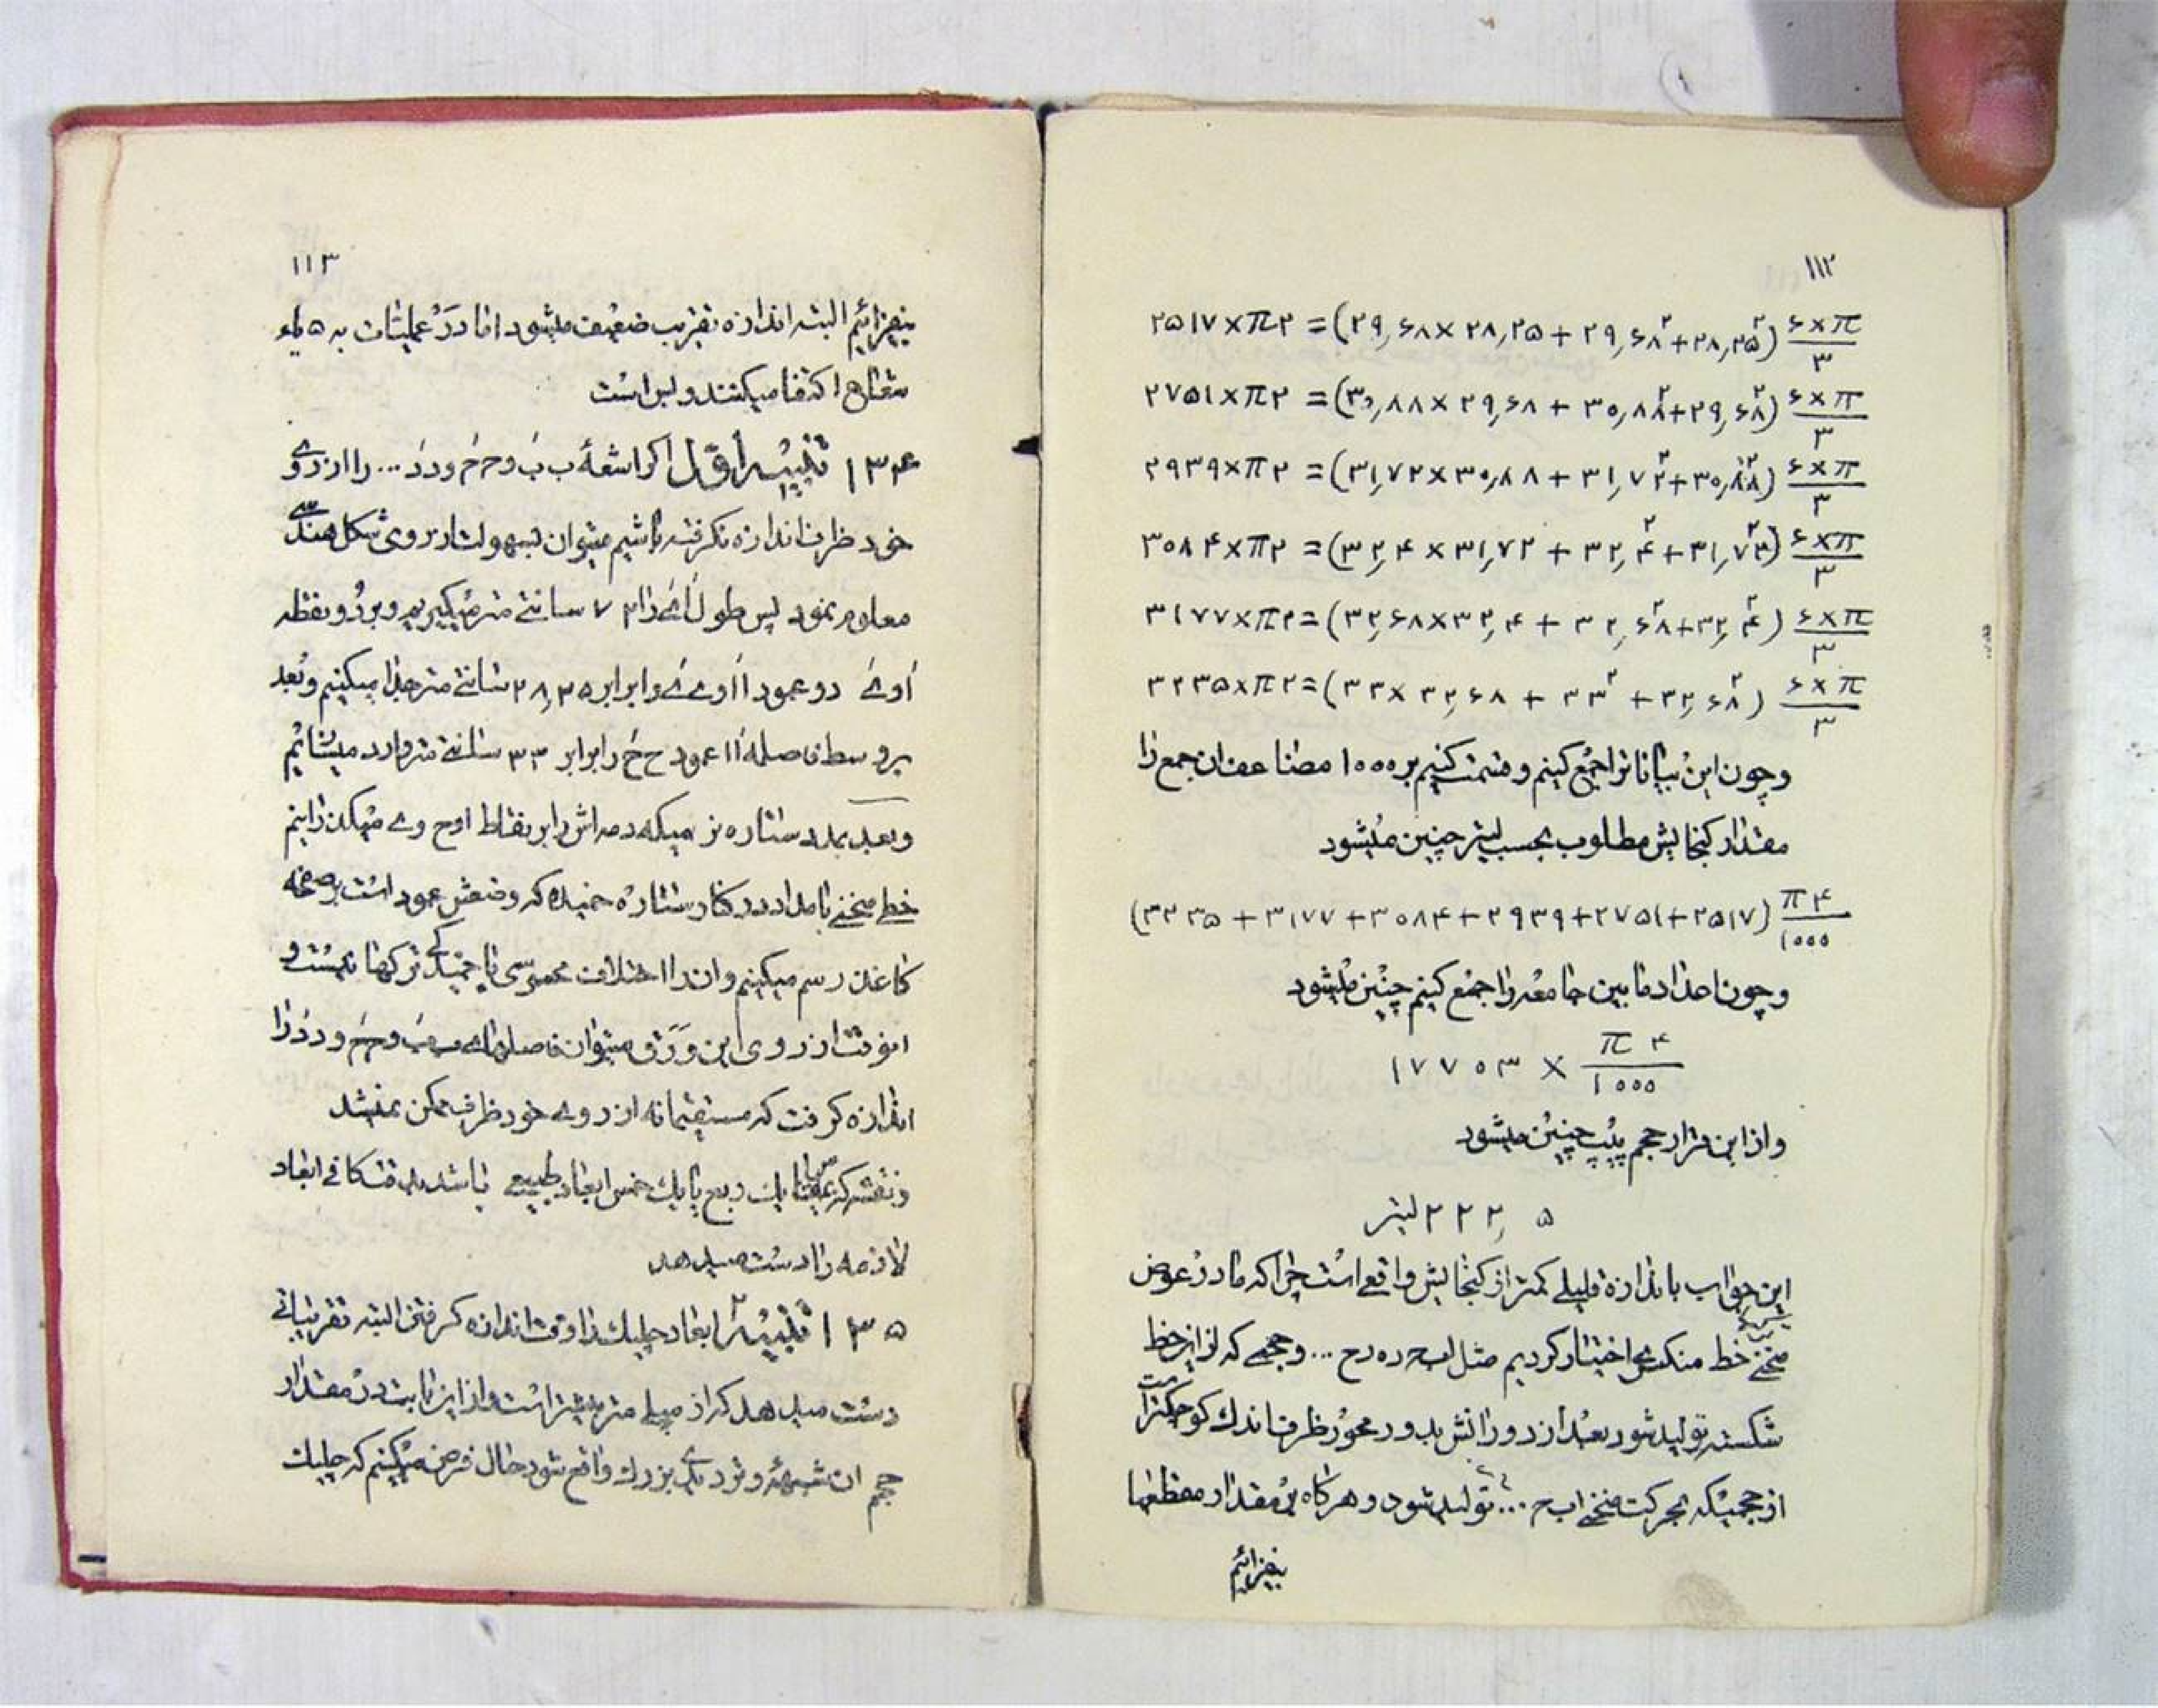 ۱۱۲
۲۵۱۷×π۲ = (۲۹,۶۸×۲۸,۲۵ + ۲۹,۶۸² + ۲۸,۲۵²) ۶×π/۳
۲۷۵۱×π۲ = (۳۰,۸۸×۲۹,۶۸ + ۳۰,۸۸² + ۲۹,۶۸²) ۶×π/۳
۲۹۳۹×π۲ = (۳۱,۷۲×۳۰,۸۸ + ۳۱,۷۲² + ۳۰,۸۸²) ۶×π/۳
۳۰۸۴×π۲ = (۳۲,۴×۳۱,۷۲ + ۳۲,۴² + ۳۱,۷۲²) ۶×π/۳
۳۱۷۷×π۲ = (۳۲,۶۸×۳۲,۴ + ۳۲,۶۸² + ۳۲,۴²) ۶×π/۳
۳۲۳۵×π۲ = (۳۳×۳۲,۶۸ + ۳۳² + ۳۲,۶۸²) ۶×π/۳
و چون این بیانات را جمع کنیم و قسمت کنیم بر ۱۰۰۰ مضاعف ان جمع را
مقدار کنجایش مطلوب بحسب لیتر چنین میشود
(۳۲۳۵ + ۳۱۷۷ + ۳۰۸۴ + ۲۹۳۹ + ۲۷۵۱ + ۲۵۱۷) π۴/۱۰۰۰
و چون اعداد مابین جامعه را جمع کنیم چنین میشود
۱۷۷۰۳ × π۴/۱۰۰۰
و از این قرار حجم پیپ چنین میشود
۲۲۲,۵ لیتر
این جواب باندازه قلیلی کمتر از کنجایش واقعی است چرا که ما در عوض
منحنی خط منکسری اختیار کردیم مثل اب ح ده رح ... و حجمی که از این خط
شکسته تولید شود بعد از دورانش بدور محور ظرف اندک کوچکتر است
از حجمیکه بحرکت منحنی اب ح ... تولید شود و هرکاه بر مقدار مقطعها
بیفزائیم
۱۱۳
بیفزائیم البته اندازه تقریب ضعیف میشود اما در عملیات به ۵ یا ۶
مقطع اکتفا میکنند و بس است
۱۳۴ تنبیه اول اکر اشعهٔ ب بَ و ح حَ و د دَ ... را از روی
خود ظرف اندازه نکرفته باشیم میتوان بسهولت از روی شکل هندسی
معلوم نمود پس طول را ۷۲ سانتی متر میکیریم و بر دو نقطه
اَ و ےَ دو عمود اَا و ےَے را برابر ۲۸,۲۵ سانتی متر جدا میکنیم و بعد
بر وسط فاصله عمود ح حَ را برابر ۳۳ سانتی متر وارد میسازیم
و بعد بمدد ستاره نرمیکه دمه اش را بر نقاط ا و ح و ے میکذرانیم
خط منحنی با مداد در کنار ستاره خمیده که وضعش عمود است بر صفحه
کاغذ رسم میکنیم و ان را اختلاف محسوسی با خمیدکی ترکها نیست و
انوقت از روی این ورق میتوان فاصله های ب بَ و ح حَ و د دَ را
اندازه کرفت که مستقیمانه از روی خود ظرف ممکن نمیشد
و نقشه که بمقیاس یک ربع یا یک خمس ابعاد طبیعی باشد بدقت کافی ابعاد
لازمه را دست میدهد
۱۳۵ تنبیه ۲ ابعاد چلیک را وقت اندازه کرفتن البته تقریباتی
دست میدهد که از میلی متر بیشتر است و از این بابت در مقدار
حجم ان شبههٔ و تردیدی بزرک واقع شود حال فرض میکنیم که چلیک